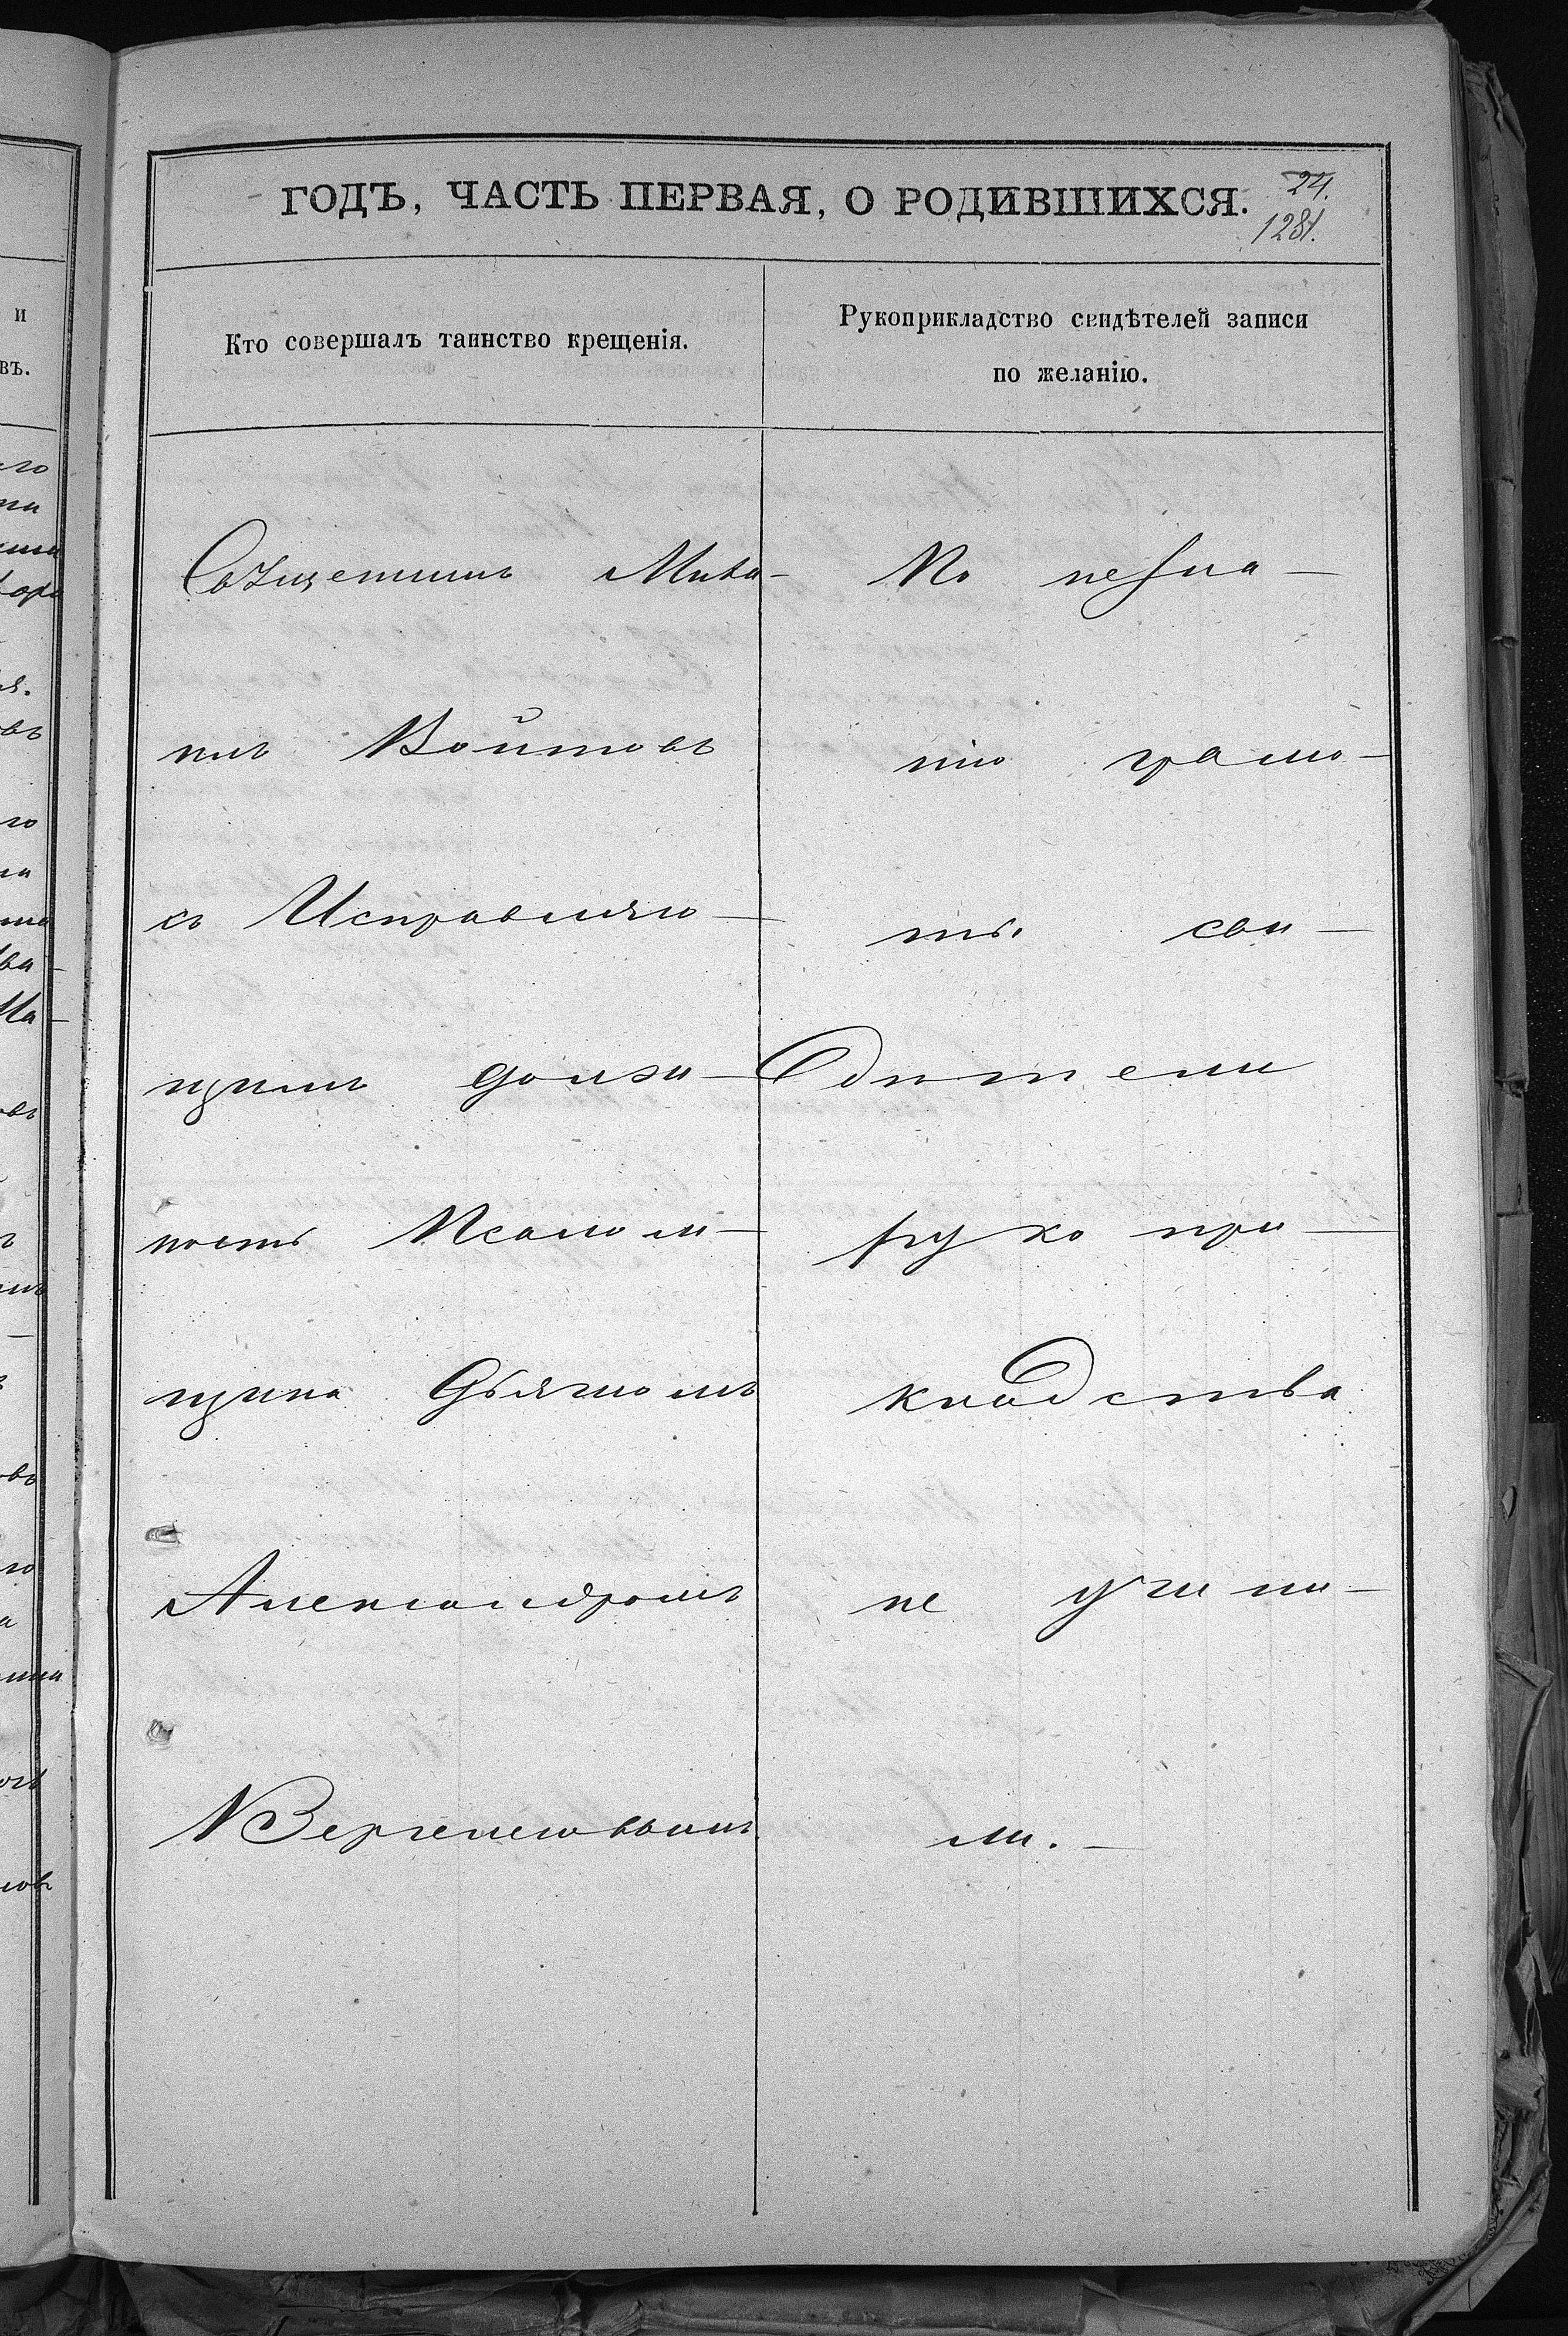 ГОДЪ, ЧАСТЬ ПЕРВАЯ, О РОДИВШИХСЯ.
24.
1281.
Кто совершалъ таинство крещенія.
Рукоприкладство свидѣтелей записи
по желанію.
Священникъ Миха-
илъ Войтовъ
съ Исправляю-
щимъ должн-
ность Псалом-
щика Дьячкомъ
Александромъ
По незна-
нію грамо-
ты сви-
дители
руко при-
кладства
не учини-
ли.